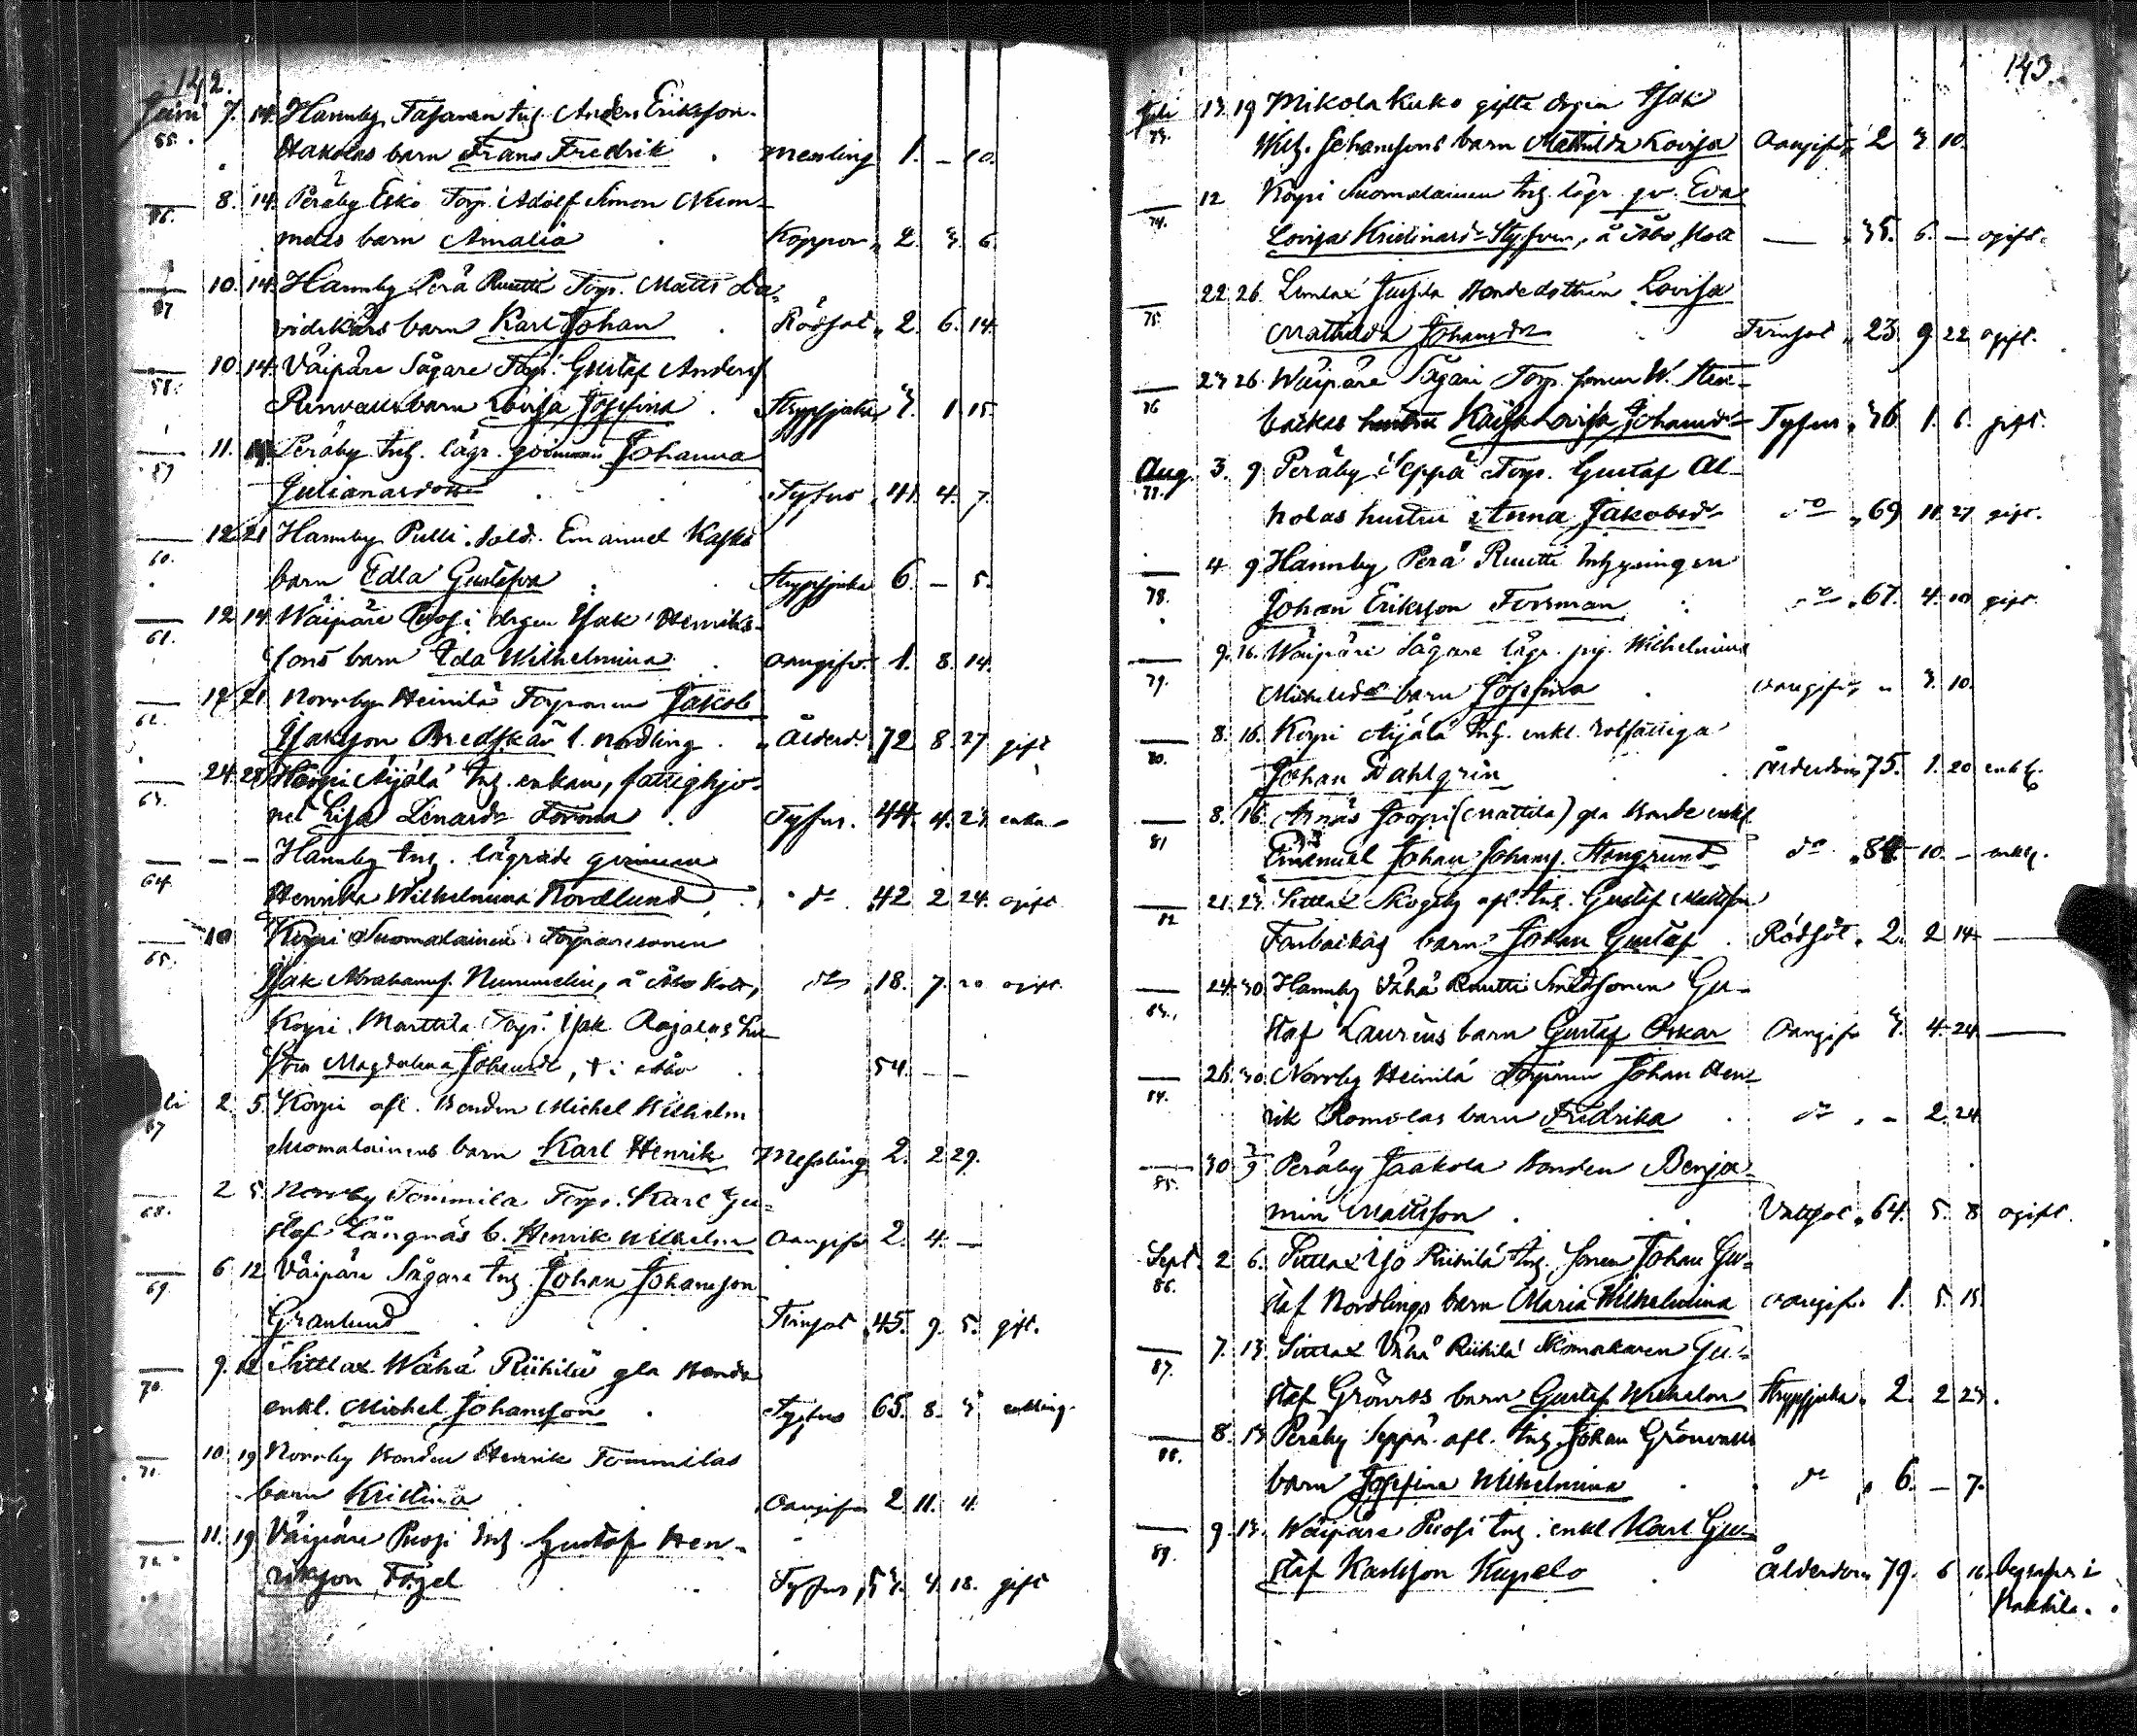 142.
Juni 7. 14. Hannby Tasanen Inh. Anders Eriksson
55. Hakolas barn Frans Fredrik . Messling 1. – 10.
8. 14. Peräby Esko Torp. Adolf Simon Num-
56. melis barn Amalia . Koppor „ 2. 3 6.
10. 14. Hannby Perä Ruutti Torp. Matts Da-
57 vidskärs barn Karl Johan . Rödsot „ 2. 6. 14.
10. 14. Väipäre Sågare Torp. Gustaf Anders
58. barn Lovisa Josefina . Strypsjuka 3. 1 15.
11. Peräby Inh. lägr. qvinnan Johanna
59 Julianasdotter . . Tyfus „ 41. 4. 7.
12 21 Hannby Pulli Sold. Emanuel Kasks
60. barn Edla Gustafva . Strypsjuka 6. – 5.
12 14 Wäipäre Ruosi drgen Isak Henriks-
61. sons barn Ida Wilhelmina . Oangifv. 1. 8. 14.
17 21 Norrby Heinilä Torparen Jakob
62. Isaksson Bredskär l. Nordling . Ålderd. 72 8. 27 gift
24. 28 Korpi Äijälä Inh. enkan, fattighjo-
63. net Lisa Lenardsdr Forsman . Tyfus. 44. 4. 23. enka
– – Hannby Inh. lägrade qvinnan
64. Henrika Wilhelmina Nordlund . do 42 2 24. ogift
10 Korpi Suomalainen Torparesonen
65. Isak Abrahamss. Nummelin, å Åbo slott, do 18. 7. 20 ogift.
Korpi Marttila Torp. Isak Rajalas hu-
stru Magdalena Johansdr, † i Åbo . 54. – –
2. 5. Korpi afl. Bonden Michel Wilhelm
67 Suomalainens barn Karl Henrik Messling 2. 2 29.
2 5. Norrby Tommila Torp. Karl Gu-
68. staf Långnäs b. Henrik Wilhelm Oangifv 2. 4. –
6 12 Väipäre Sågare Inh. Johan Johansson
69. Granlund . . . Tvinsot 45. 9. 5. gift.
9. 12 Sittlax Wähä Riihilä gla Bonde
70. enkl. Michel Johansson . Tyfus 65. 8. 3 enkling.
10. 19 Norrby Bonden Henrik Tommilas
71. barn Kristina . . Oangifv 2 11. 4.
11. 19 Väipäre Ruosi Inh. Gustaf Hen-
72. riksson Fågel . . . Tyfus, 53. 4. 18. gift
143.
Juli 13. 19 Mikola Kuko gifte drgen Isak
73. Wilh. Johanssons barn Mathilda Lovisa Oangifv. 2 3 10.
12 Korpi Suomalainen Inh. lägr. qv. Eva
74. Lovisa Kristinasdr Styfver, å Åbo slott — „ 35. 6. – ogift.
22 26. Lemlax Jussila Bondedottren Lovisa
75. Mathilda Johansdr . Tvinsot „ 23. 9. 22 ogift.
23 26. Wäipäre Sågare Torp. sonen W. Sten-
76 backas hustru Kajsa Lovisa Johansdr Tyfus „ 36 1. 6. gift.
Aug. 3. 9. Peräby Seppä Torp. Gustaf Al-
77. holas hustru Anna Jakobsdr do „ 69 11. 27 gift.
4 9 Hannby Perä Ruutti Inhysingen
78. Johan Eriksson Forsman . do „ 67. 4. 10 gift.
9. 16. Wäipäre Sågare lägr. pig. Wilhelmina
79. Michelsdr barn Josefina . Oangifv. „ 3. 10.
8. 16. Korpi Äijälä Inh. enkl. rotfattiga
80. Johan Dahlgren . . Ålderdom 75. 1. 20 enkl.
8. 16. Arnäs Jooppi (Mattila) gla Bonde enkl.
81 Emanuel Johan Johanss. Stengrund do „ 84. 10. – enkl.
21. 23. Sittlax Skogsby afl. Inh. Gustaf Mattsson
82 Fårbackas barn Johan Gustaf . Rödsot . 2. 2 14 —
24. 30 Hannby Vähä Ruutti Smedsonen Gu-
83. staf Laurens barn Gustaf Oskar Oangifv 3. 4. 24. —
26. 30. Norrby Heinilä Torparen Johan Hen-
84. rik Romolas barn Fredrika . do „ – 2. 24
30 3/9 Peräby Jaakola Bonden Benja-
85. min Mattsson . . . Vattsot „ 64. 5. 8 ogift.
Sept. 2 6. Sittlax Iso Riihilä Inh. sonen Johan Gu-
86. staf Nordlings barn Maria Wilhelmina Oangifv. 1. 5. 15.
7. 13. Sittlax Vähä Riihilä Skomakaren Gu-
87. staf Grönroos barn Gustaf Wilhelm Strypsjuka . 2. 2 23.
8. 13 Peräby Seppä afl. Inh. Johan Grönvalls
88. barn Josefina Wilhelmina . do „ 6. – 7.
9. 13. Wäipäre Ruosi Inh. enkl. Karl Gu-
89. staf Karlsson Kupelo . Ålderdom 79. 6 16.